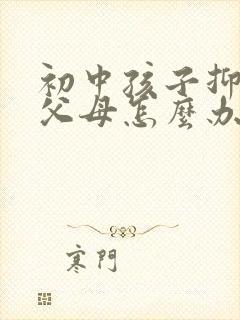 初中孩子抑
父母怎麼办
寒門